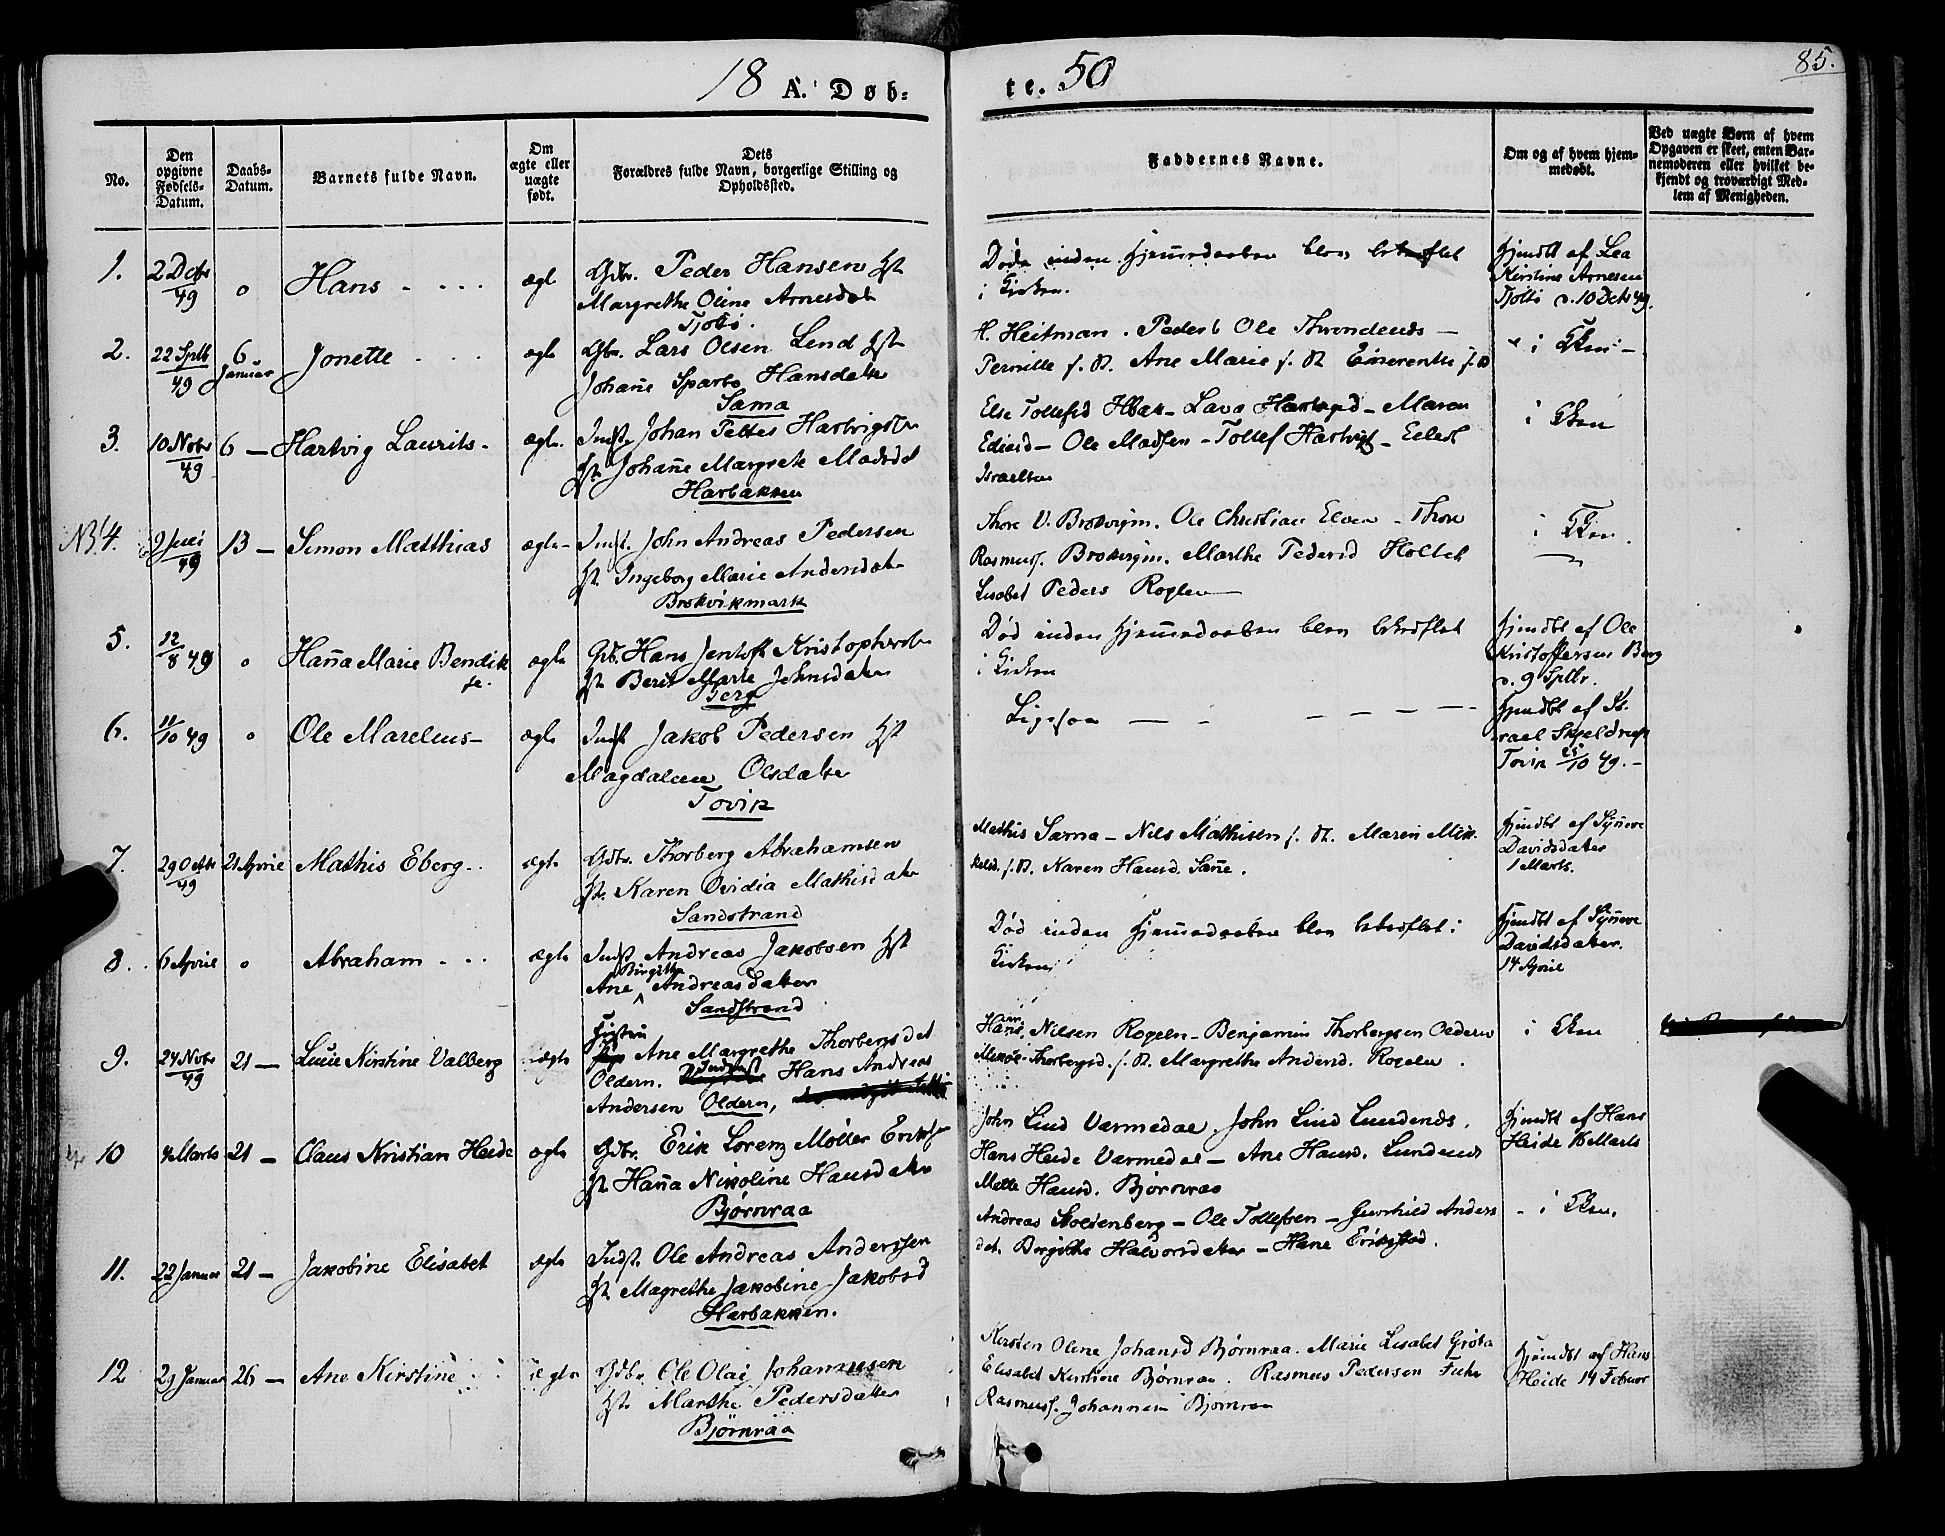 18 A. Døb-
te. 50
85.
No.
Den opgivne Fødsels-Datum.
Daabs-Datum.
Barnets fulde Navn.
Om ægte eller uægte født.
Dets Forældres fulde Navn, borgerlige Stilling og Opholdssted.
Faddernes Navne.
Om og af hvem hjem-
medøbt.
Ved uægte Børn af hvem
Opgaven er skeet, enten Bar-
nemoderen eller hvilket be-
kjendt og troværdigt Med-
lem af Menigheden.
1. Hans ægte Gdbr. Peder Hansen Hst
49 Margrethe Oline Arnesdat
Tjotø.
i Kirken.
Kirstine Arnesen
2. 6 Januar Jonette ægte Gbr. Lars Olsen Lend Hst
49 Johane Sparbo Hansdatter
Sama
H. Heitman. Peder Ole Throndsen
Pernille Ane Marie
3. 10 Novbr 49 6 — Hartvig Laurits ægte. Indst Johan Hartvigs
Hst. Johane Margrete Madsdat
Harbakken
Ole Madsen - Tollef Hartvig
Israelsen
NB. 4. 9 Juli 49 13 — Simon Matthias ægte Indst. John Andreas Pedersen
Hst. Ingeborg Marie Andersdatter
Brokvikmark
Ole Christian Elven - Thore
Rasmuss. Marthe Pedersd
Lisabet Peders Roglen
5. 12/8 49 Hanna Marie Bendik ægte Gdb. Hans Jentoft Kristophersen
Hst Berit Marie Johnsdatter
Berg
Død inden Hjemmedaaben blev bekræftet
i Kirken
Hjemdbt af Ole
Kristoffersen Berg
6. 11/10 49 Ole Marelius ægte Indst Jakob Pedersen Hst
Magdalene Olsdatter
Tovik
Ligesaa
Hjemdbt af Is-
rael Skjeldrup
Tovik 25/10 49.
7. 29 Octbr 49 21 April Mathis Eberg ægte Gdbr. Thorberg Abrahamsen
Hst. Karen Ovidia Mathisdatter
Sandstrand
Mathis Sama - Nils Mathisen Maren Mik-
Karen Hansd. Same.
Hjemdbt af Synneve
Davidsdatter
1 Marts.
8. 6 April Abraham ægte Indst Andreas Jakobsen Hst
Ane Birgitte Andreasdatter
Sandstrand
Død inden Hjemmedaaben blev bekræftet i
Kirken
Hjemdbt af Synneve
Davidsdatter.
14 April
9. 24 Novbr 49 21 — Kirstine Valberg ægte Ane Margrethe Thorbergsdet
Oldern. Indst Hans Andreas
Andersen Oldern,
Hans Nilsen Rogeln - Benjamin Thorbergsen Oldern
Thorbergsd. Margrethe Andersd. Rogeln.
10 4 Marts 21 — Claus Kristian Heide ægte Gdbr. Erik Lorenz Møller Eriks
Hst Hanna Nikoline Hansdatter
Bjørnraa
John Lind Varmedal. John Lind Lundenes.
Hans Heide Varmedal - Ane Hansd. Lundenes
Mette Hansd. Bjørnraa
Hjemdbt af Hans
Heide Marts
11. 22 Januar 21 — Jakobine Elisabet ægte Indst. Ole Andreas Anderssen
Hst. Magrethe Jakobine Jakobsd
Harbakken.
Andreas Stoltenberg - Ole Tollefsen - Gunhild Anders
dat. Birgitte Halvorsdatter - Hane
12 29 Januar 26 — Ane Kirstine ægte Gdbr. Ole Olai Johannesen
Hst. Marthe Pedersdatter
Bjørnraa
Kirsten Oline Johansd Bjørnraa. Marie Lisabet
Elisabet Kirstine Bjørnraa. Rasmus Pedersen
Rasmuss. Johannes Bjørnraa
Hjemdbt af Hans
Heide 14 Februar